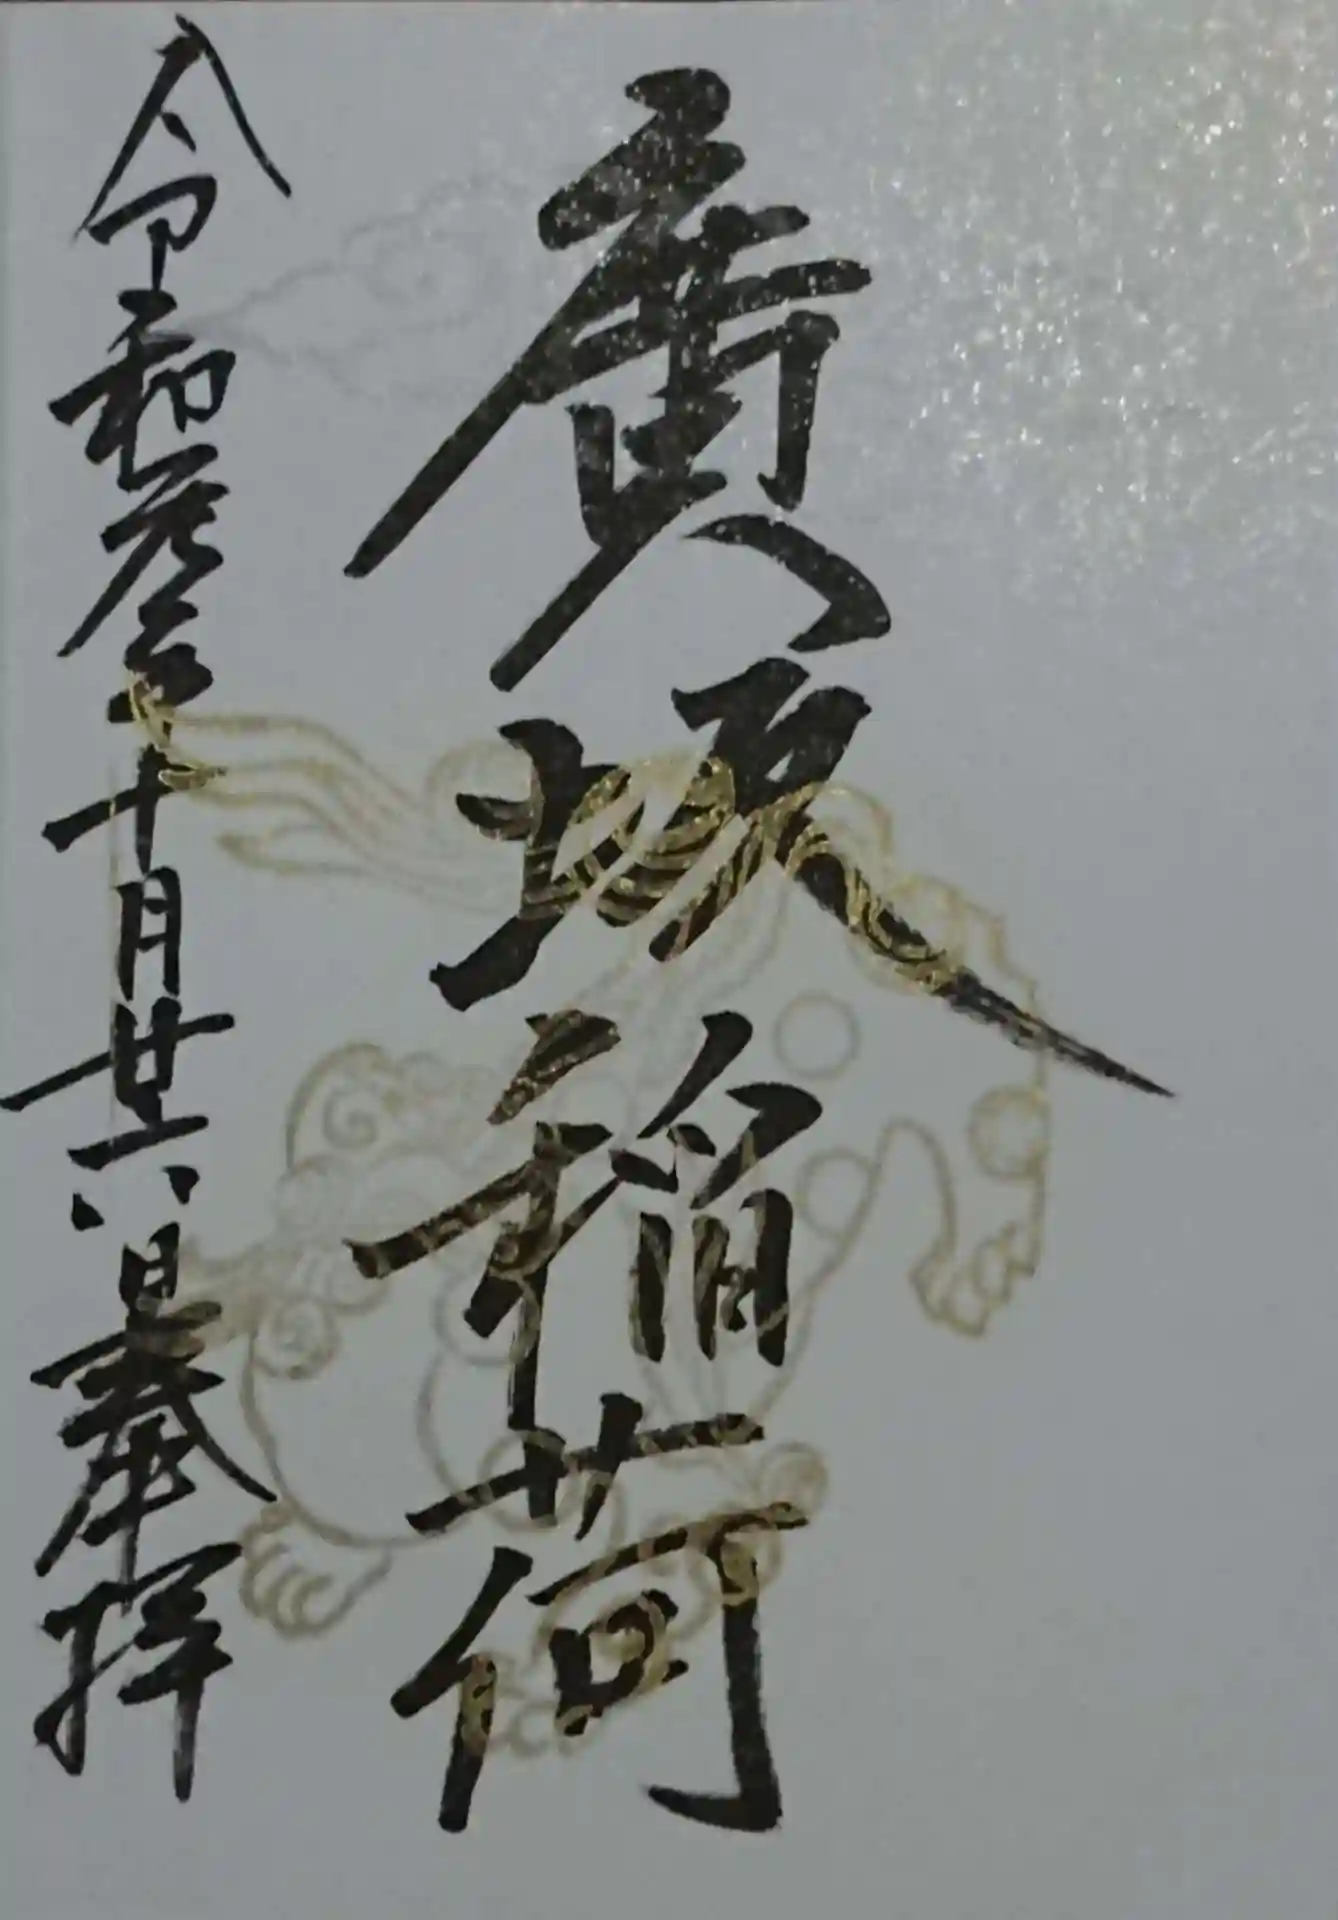 廣坂稲荷
令和元年十月廿六日奉拝